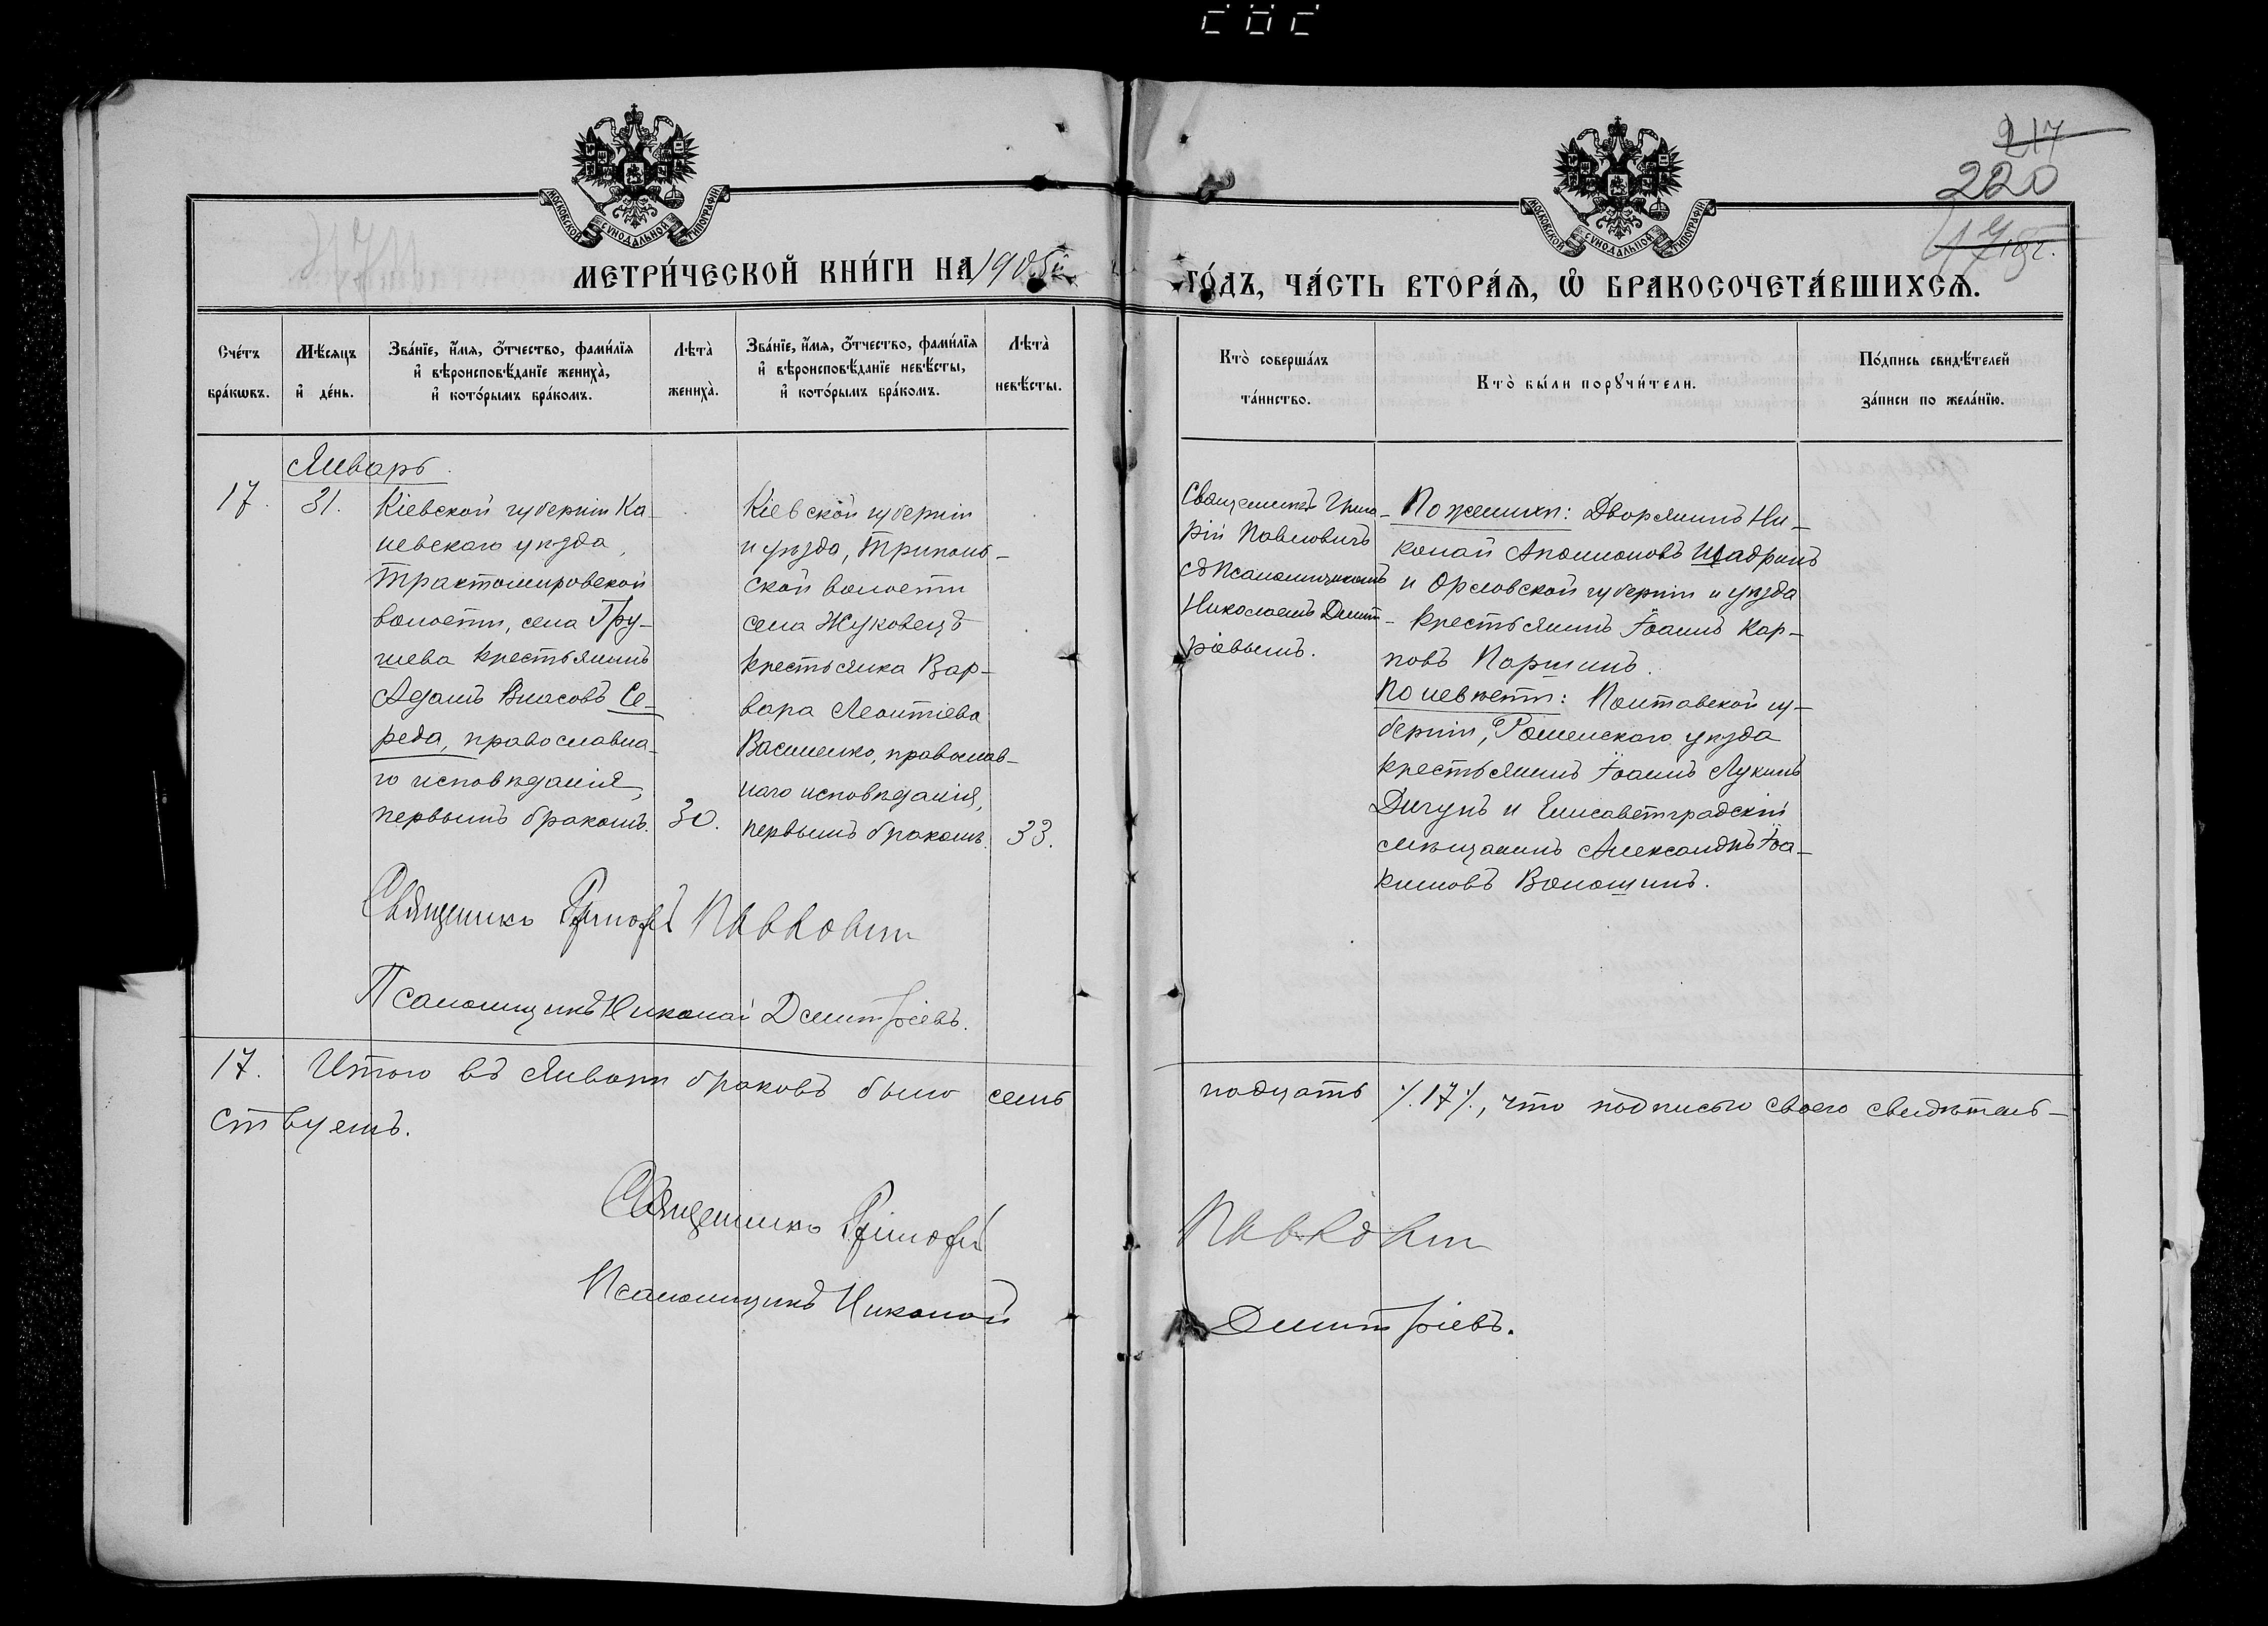 217
220
МОСКОВСКОЙ СѴНОДАЛЬНОЙ ТИПОГРАФІИ
МОСКОВСКОЙ СѴНОДАЛЬНОЙ ТИПОГРАФІИ
МЕТРИ́ЧЕСКОЙ КНИ́ГИ НА 1905й
ГО́ДЪ, ЧА́СТЬ ВТОРА́Ѧ, Ѽ БРАКОСОЧЕТА́ВШИХСѦ.
Сче́тъ бра́кѡвъ.
Мѣ́сѧцъ и҆ де́нь.
Зва́нїе, и҆́мѧ, ѻ҆́тчество, фами́лїѧ и҆ вѣроисповѣ́данїе жениха̀, и҆ кото́рымъ бра́комъ.
Лѣта̀ жениха̀.
Зва́нїе, и҆́мѧ, ѻ҆́тчество, фами́лїѧ и҆ вѣроисповѣ́данїе невѣ́сты, и҆ кото́рымъ бра́комъ.
Лѣта̀ невѣ́сты.
Кто̀ соверша́лъ та́инство.
Кто̀ бы́ли порꙋчи́тели.
По́дпись свидѣ́телей за́писи по жела́нїю.
Январь.
17.
31.
Кіевской губерніи Ка-
невскаго уѣзда,
Трактомировской
волости, села Гру-
шева крестьянинъ
Адамъ Власовъ Се-
реда, православна-
го исповѣданія,
первымъ бракомъ.
30.
Кіевской губерніи
и уѣзда, Триполь-
ской волости
села Жуковецъ
крестьянка Вар-
вара Леонтіева
Василенко, православ-
наго исповѣданія,
первымъ бракомъ.
33.
Священникъ
рій Павловичъ
съ Псаломщикомъ
Николаемъ Дмит-
ріевымъ.
По женихѣ: Дворянинъ Ни-
колай Аполлоновъ Шадринъ
и Орловской губерніи и уѣзда
крестьянинъ Іоаннъ Кар-
повъ Паршинъ.
По невѣстѣ: Полтавской гу-
берніи, Роменскаго уѣзда
крестьянинъ Іоаннъ Лукинъ
Дигунъ и Елисаветградскій
мѣщанинъ Александръ Іоа-
кимовъ Волошинъ.
Священникъ Павловичъ
Псаломщикъ Николай Дмитріевъ.
17. Итого въ Январѣ браковъ было семь
надцать /.17/., что подписью своею свидѣтель-
ствуемъ.
Священникъ
Павловичъ
Псаломщикъ Николай
Дмитріевъ.